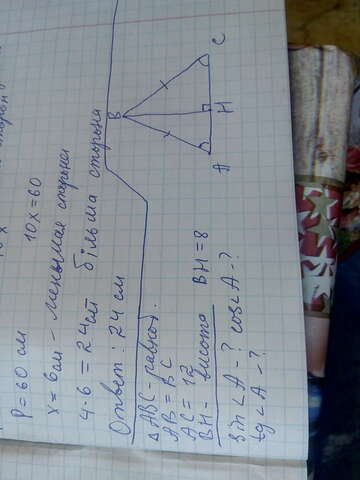 P = 60 см
10x = 60
x = 6 см - меньшая сторона
4 · 6 = 24 см більша сторона
Ответ: 24 см
Δ ABC - равноб.
AB = BC
AC = 12
BH - висота BH = 8
Sin < A - ? cos < A - ?
tg < A - ?
B
C
H
A